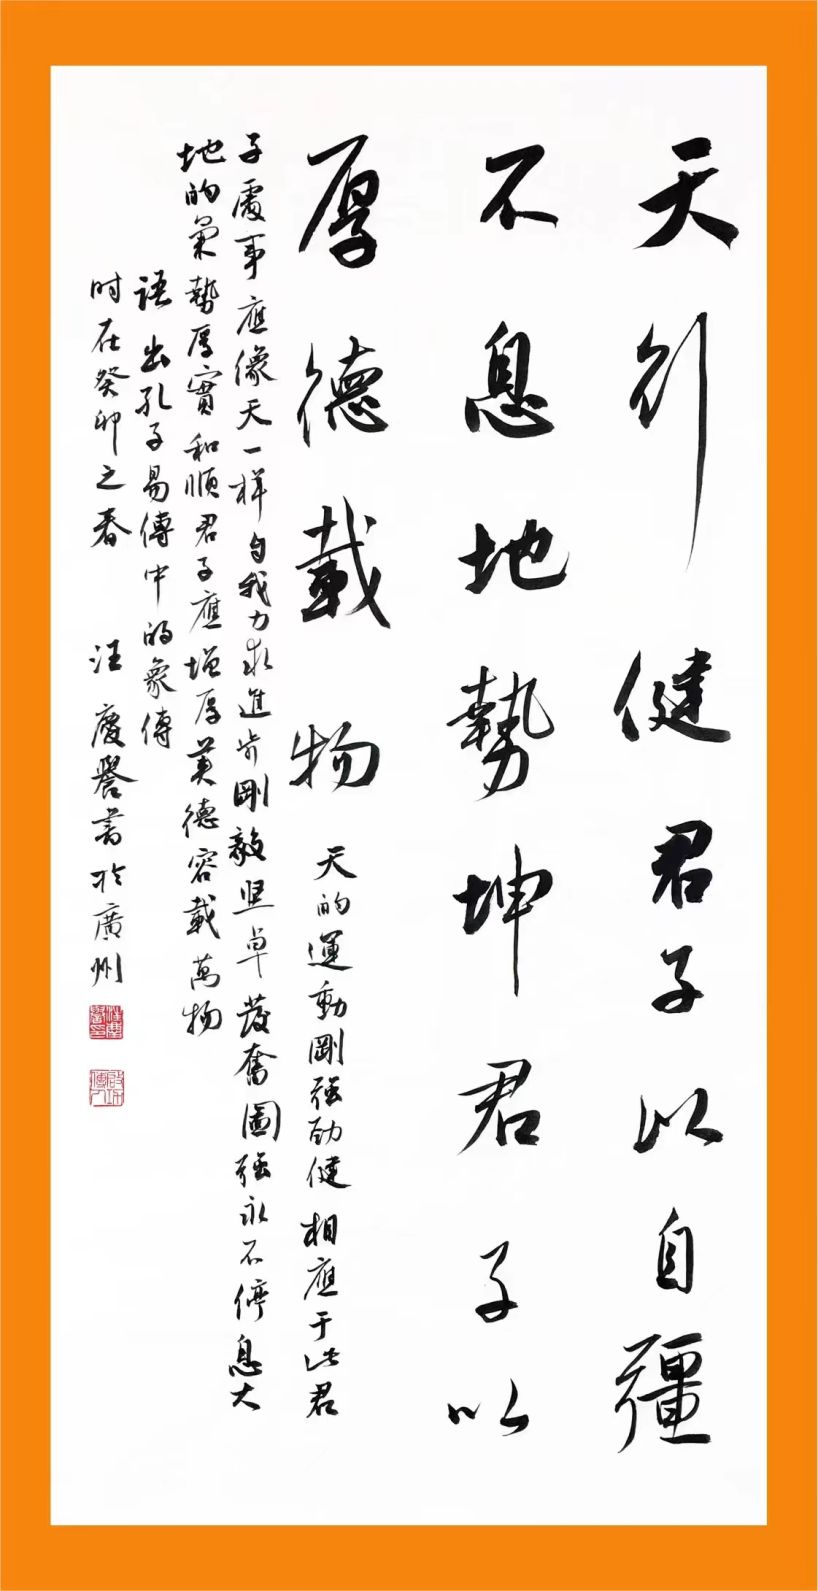 天行健君子以自彊
不息地勢坤君子以
厚德載物
天的運動剛强劲健相應于此君
子處事應像天一样自我力求進步剛毅坚卓發奮圖强永不停息大
地的氣勢厚實和順君子應增厚美德容載萬物
語出孔子易傳中的象傳
时在癸卯之春 汪慶誉書於廣州